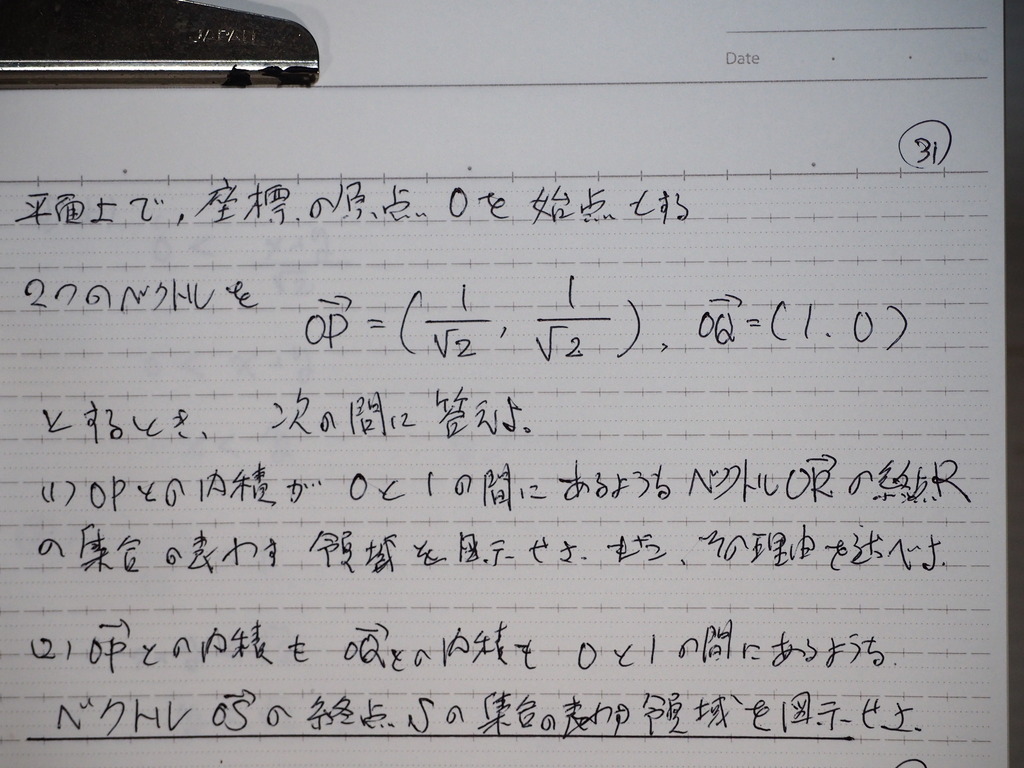 JAPAN
Date
31
平面上で,座標の原点Oを始点とする
2つのベクトルを $\overrightarrow{OP} = \left(\frac{1}{\sqrt{2}}, \frac{1}{\sqrt{2}}\right)$, $\overrightarrow{OQ} = (1.0)$
とするとき、次の問に答えよ。
(1) OPとの内積が0と1の間にあるようなベクトル$\overrightarrow{OR}$の終点R
の集合の表わす領域を図示せよ. また、その理由を述べよ.
(2) $\overrightarrow{OP}$との内積も $\overrightarrow{OQ}$との内積も 0と1の間にあるような
ベクトル $\overrightarrow{OS}$の終点Sの集合の表わす領域を図示せよ.